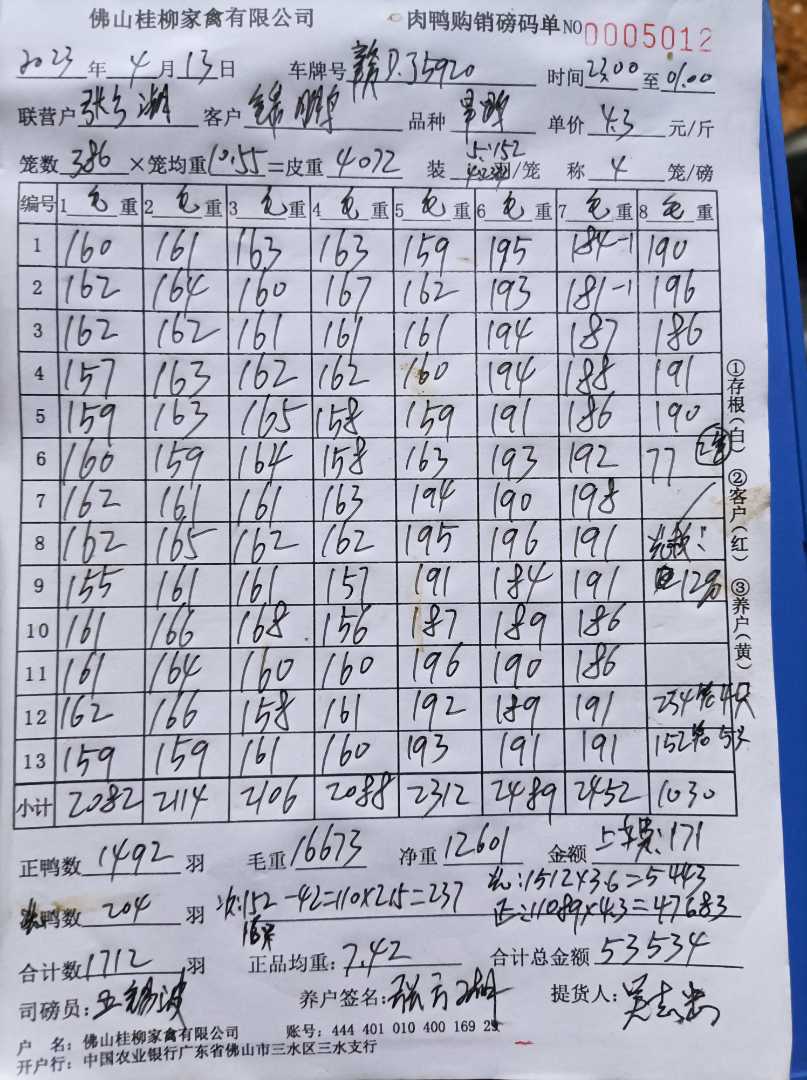 佛山桂柳家禽有限公司 肉鸭购销磅码单 NO 0005012
2023 年 4 月 13 日 车牌号 赣D.35920 时间 23:00 至 01:00
联营户 客户 品种 单价 4.3 元/斤
笼数 386 ×笼均重 10.55 =皮重 4072 装 /笼 称 4 笼/磅
编号 1 毛 重 2 毛 重 3 毛 重 4 毛 重 5 毛 重 6 毛 重 7 毛 重 8 毛 重
1 160 161 163 163 159 195 184-1 190
2 162 164 160 167 162 193 181-1 196
3 162 162 161 161 161 194 187 186
4 157 163 162 162 160 194 188 191
5 159 163 165 158 159 191 186 190
6 160 159 164 158 163 193 192 77
7 162 161 161 163 194 190 198
8 162 165 162 162 195 196 191
9 155 161 161 157 191 184 191
10 161 166 168 156 187 189 186
11 161 164 160 160 196 190 186
12 162 166 158 161 192 189 191 234笼4只
13 159 159 161 160 193 191 191 152笼5只
小计 2082 2114 2106 2088 2312 2489 2452 1030
正鸭数 1492 羽 毛重 16673 净重 12601 金额 171
鸭数 204 羽 次:152-42=110×2.15=237 1512×3.6=5443
正:11089×4.3=47683
合计数 1712 羽 正品均重: 7.42 合计总金额 53534
司磅员: 养户签名: 提货人:
户 名: 佛山桂柳家禽有限公司 账号: 444 401 010 400 169 29
开户行: 中国农业银行广东省佛山市三水区三水支行
①存根(白) ②客户(红) ③养户(黄)